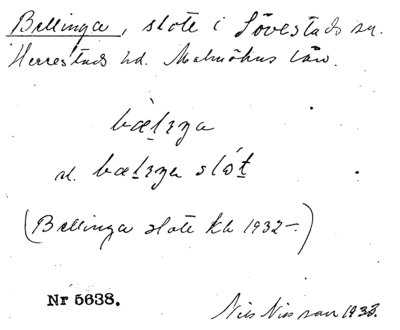 Bellinga, slott i Sövestads sn.
Herrestads hd. Malmöhus län.
bæl̠ɪŋa
el. bæl̠ɪŋa slót̠
(Bellinga slott kb 1932-)
Nr 5638.
Nils Nilsson 1933.